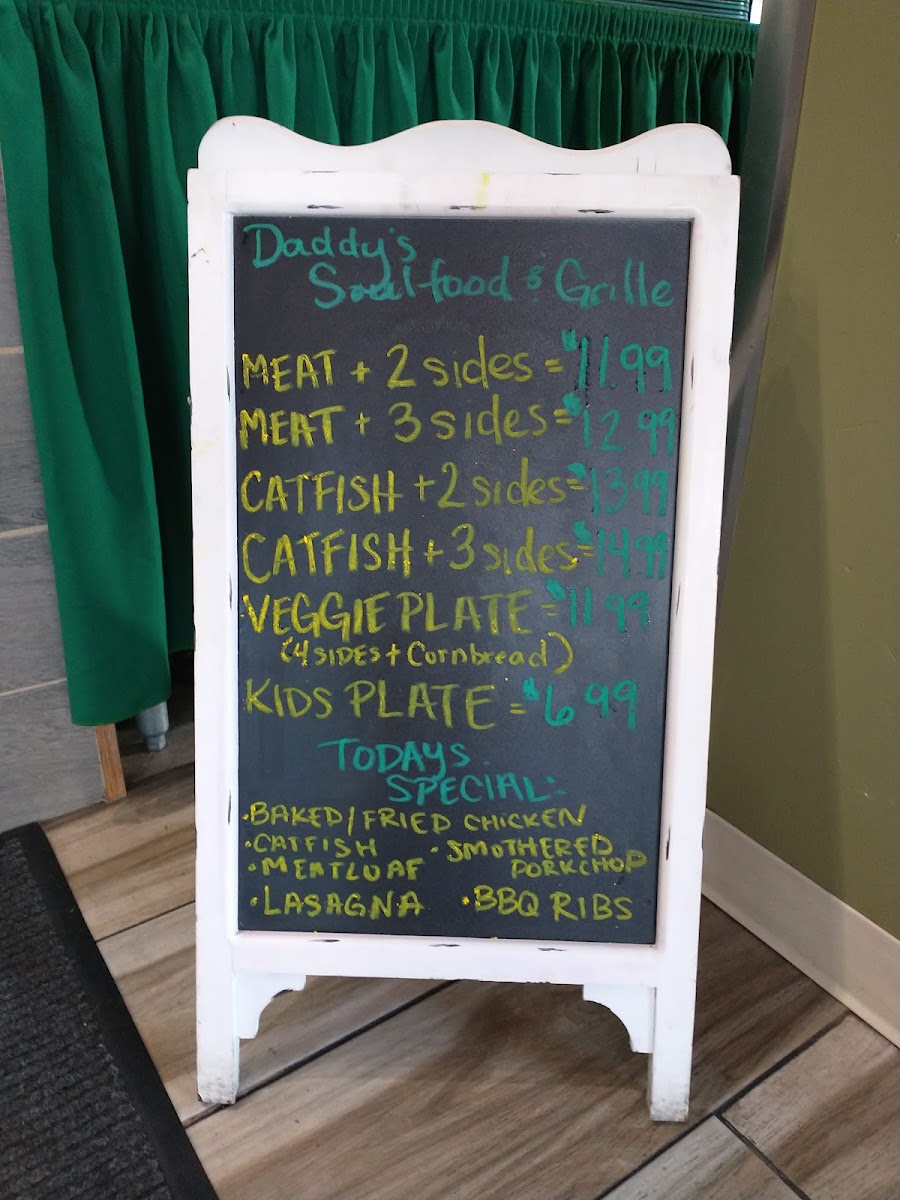 Daddy's
Soulfood & Grille
MEAT + 2 sides = $11.99
MEAT + 3 sides = $12.99
CATFISH + 2 sides = $13.99
CATFISH + 3 sides = $14.99
VEGGIE PLATE = $11.99
(4 SIDES + Cornbread)
KIDS PLATE = $6.99
TODAYS
SPECIAL:
• BAKED/FRIED CHICKEN
• CATFISH • SMOTHERED
• MEATLOAF PORKCHOP
• LASAGNA • BBQ RIBS